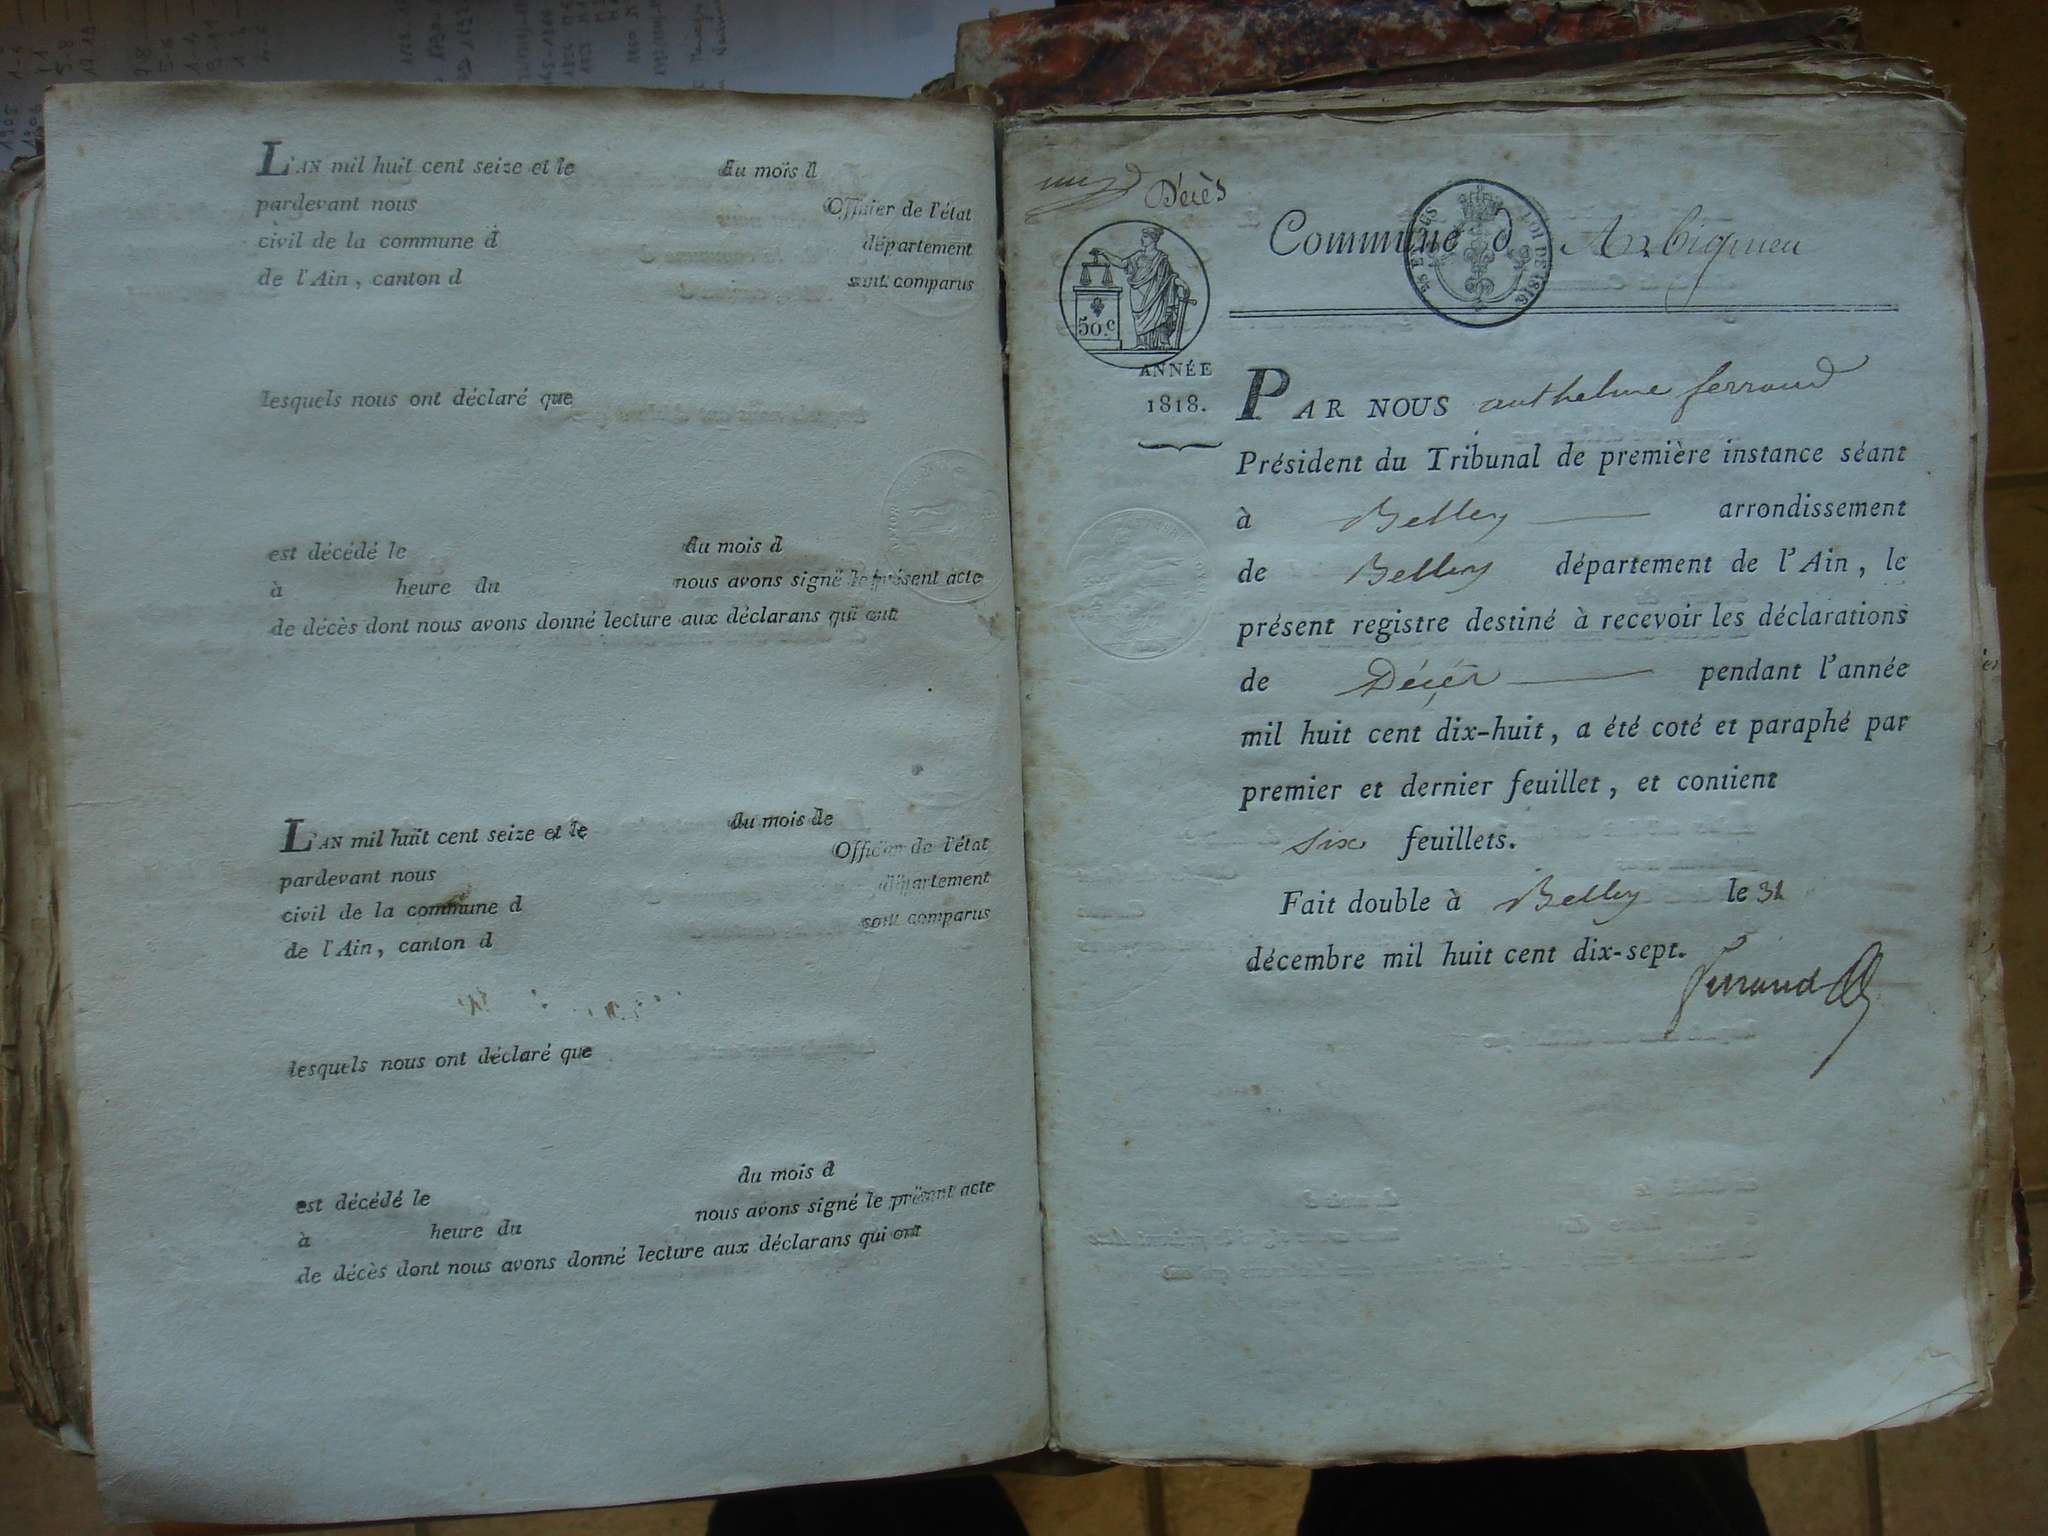 L'AN mil huit cent seize et le du mois d
pardevant nous Officier de l'état
civil de la commune d département
de l'Ain, canton d sont comparus
lesquels nous ont déclaré que
est décédé le du mois d
à heure du nous avons signé le présent acte
de décès dont nous avons donné lecture aux déclarans qui ont
L'AN mil huit cent seize et le du mois de
pardevant nous Officier de l'état
civil de la commune d département
de l'Ain, canton d sont comparus
lesquels nous ont déclaré que
est décédé le du mois d
à heure du nous avons signé le présent acte
de décès dont nous avons donné lecture aux déclarans qui ont
Décès
Commune d Arbignieu
LOI DE 1816
50 c
ANNÉE
1818.
PAR NOUS anthelme ferrand
Président du Tribunal de première instance séant
à Belley arrondissement
de Belley département de l'Ain, le
présent registre destiné à recevoir les déclarations
de Décès pendant l'année
mil huit cent dix-huit, a été coté et paraphé par
premier et dernier feuillet, et contient
six feuillets.
Fait double à Belley le 31
décembre mil huit cent dix-sept.
Ferrand